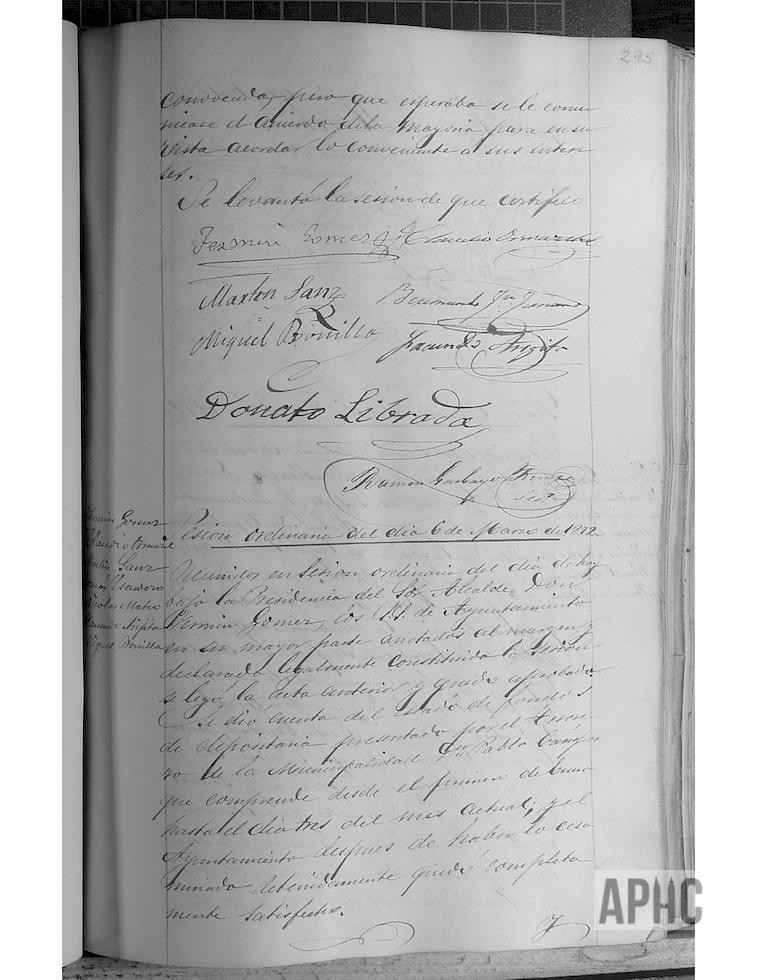 295
convocada, pero que esperaba se le comu
nicase el acuerdo dela mayoria para en su
vista acordar lo conveniente a sus intere
ses.
Se levantó la sesion de que certifico
Fermin Gomez Claudio
Martin Sanz
Miguel Bonilla Facundo
Donato Librada
Ramon Garbayo
Sesion ordinaria del dia 6 de Marzo de 1872
Fermin Gomez
Claudio
Martin Sanz
Tomás Escudero
Nicolas Mateo
Facundo
Miguel Bonilla
Reunidos en Sesion ordinaria del dia de hoy
bajo la Presidencia del Sor. Alcalde Don
Fermin Gomez, los S.S. de Ayuntamiento
en su mayor parte anotados al margen, y
declarada legalmente constituida la sesion
se leyó la acta anterior y quedó aprobada.
Se dió cuenta del estado de fondos
de depositaria presentado por el Tesore
ro de la Municipalidad Dn. Pablo Campos
que comprende desde el primero de Enero
hasta el dia tres del mes actual; y el
Ayuntamiento despues de haberlo exa
minado detenidamente quedó completa
mente satisfecho.
Y
APHC